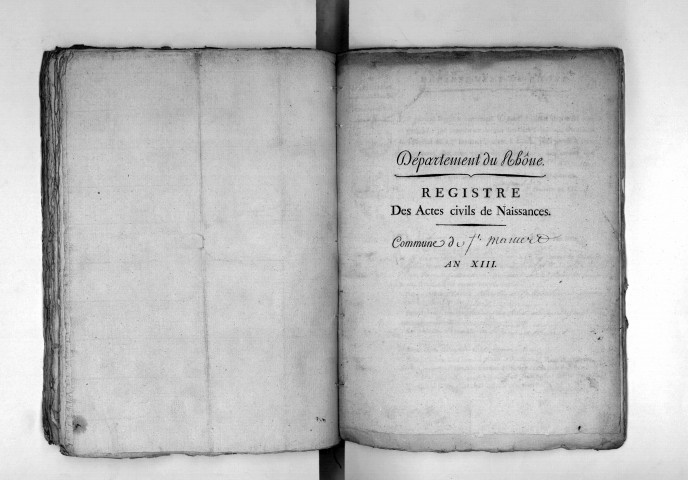 Département du Rhône.
REGISTRE
Des Actes civils de Naissances.
Commune de St. mamert
AN XIII.